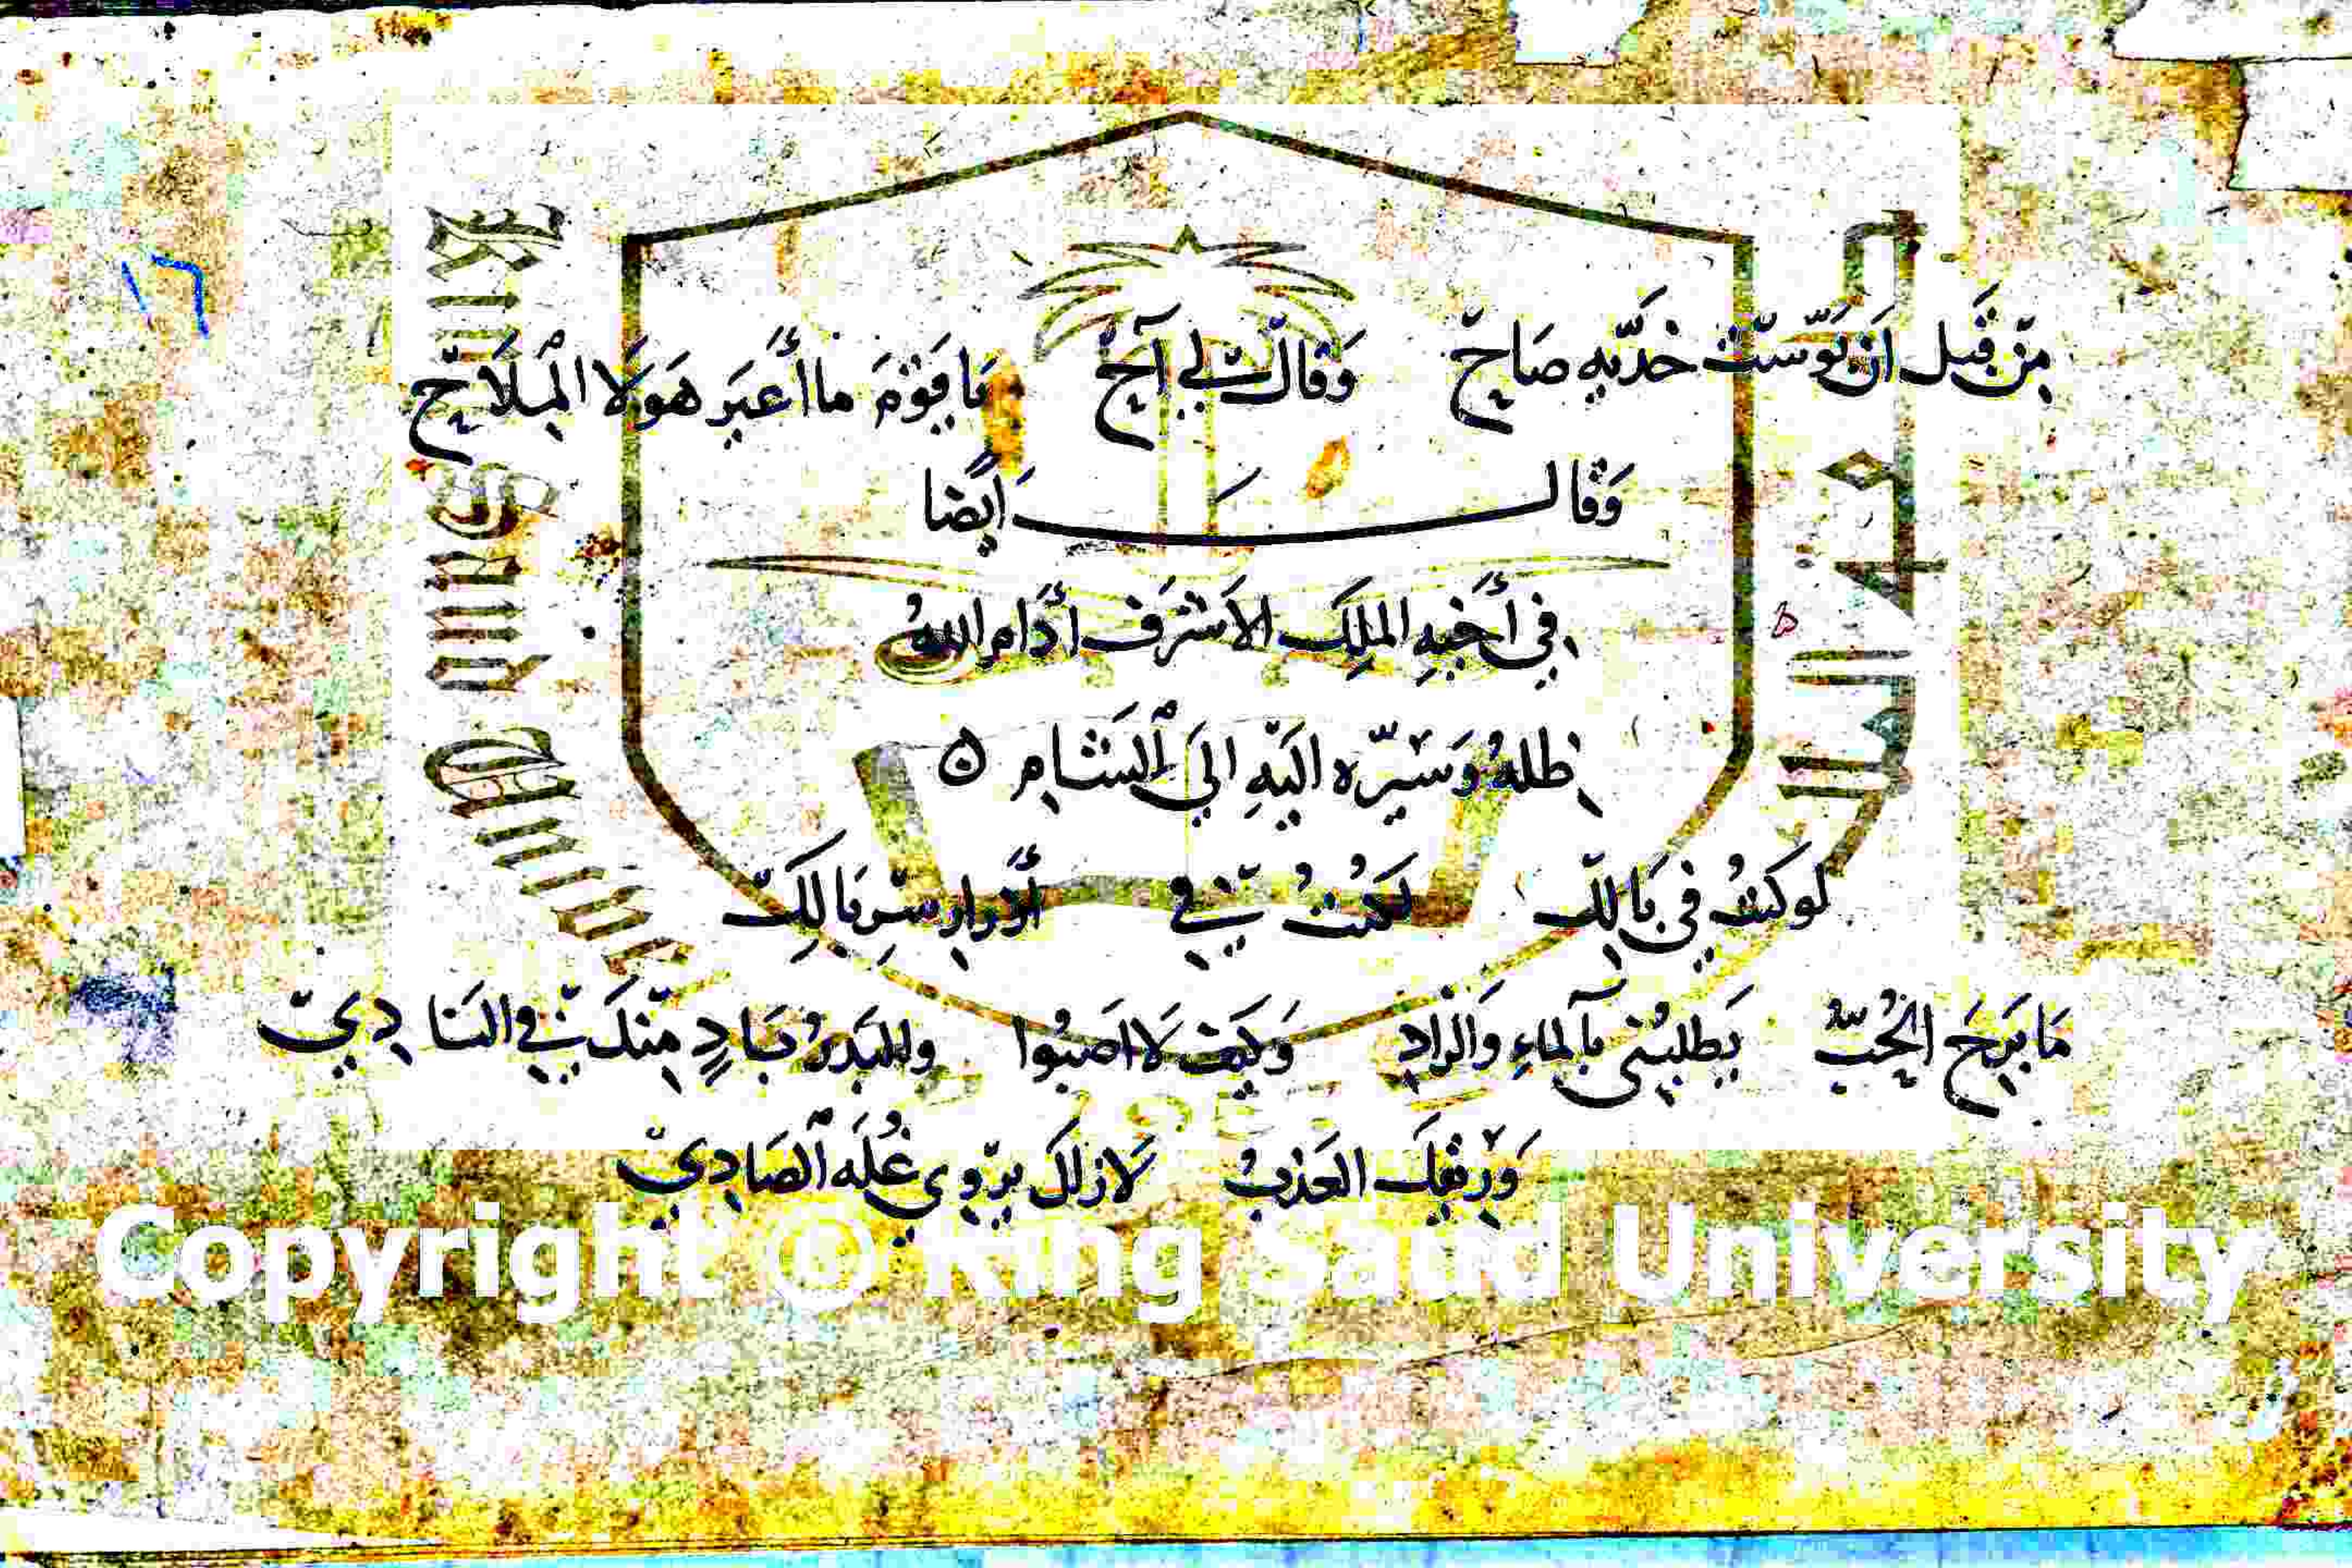 ١٦
مِنْ قَبل اَن بُوّسَتْ خدّيه صَاحْ وَقالتْ لي آحْ يَا قَوْمَ ما أَعيَر هَولَا المِلَاحْ
وَقَالَ اَيْضًا
في أَخيهِ الملِكَ الاَشْرَف أدَام اللهُ
ظلهُ وَسَيّره اليْهِ اليَ الشَامِ
لَوكنتُ في بَالِكْ لَكُنْتُ فِي أَبْرارِ سِربَالِكْ
مَا بَرِحَ الحُبُّ يَطلبُنى بالماءِ وَالزادِ وَكَيْفَ لَا اصَبُوا والبَدرُ بَادٍ مِنْكَ فِي النَادِيْ
وَرِيْقِكَ العَذبُ لَا زالَ يرْوي غُلَه الصَادِيْ
Copyright © King Saud University
King Saud